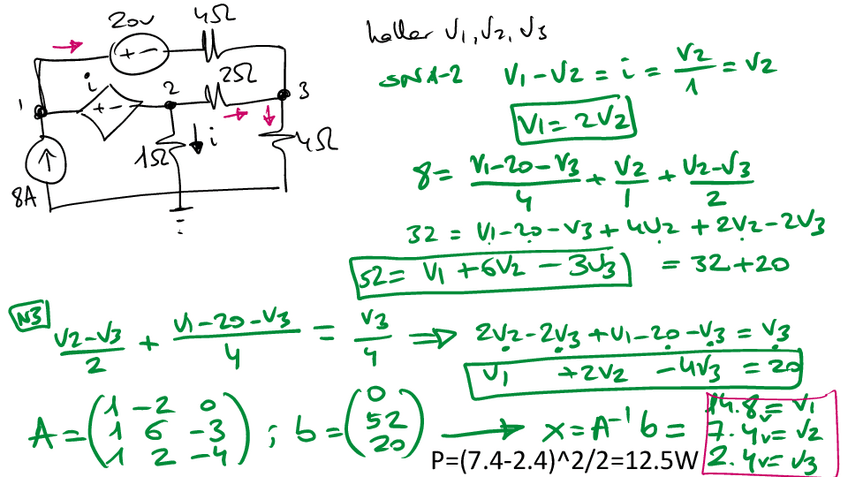 20V 4Ω
+ −
i 2 2Ω 3
1 + −
1Ω i 4Ω
8A
haller V1, V2, V3
SN 1-2 V1 − V2 = i = V2/1 = V2
V1 = 2V2
8 = (V1−20−V3)/4 + V2/1 + (V2−V3)/2
32 = V1−20−V3 + 4V2 + 2V2−2V3
52 = V1 + 6V2 − 3V3 = 32+20
N3
(V2−V3)/2 + (V1−20−V3)/4 = V3/4 ⇒ 2V2−2V3+V1−20−V3 = V3
V1 +2V2 −4V3 = 20
A = (1 −2 0; 1 6 −3; 1 2 −4) ; b = (0; 52; 20) → x = A⁻¹ b =
14.8V = V1
7.4V = V2
2.4V = V3
P=(7.4-2.4)^2/2=12.5W